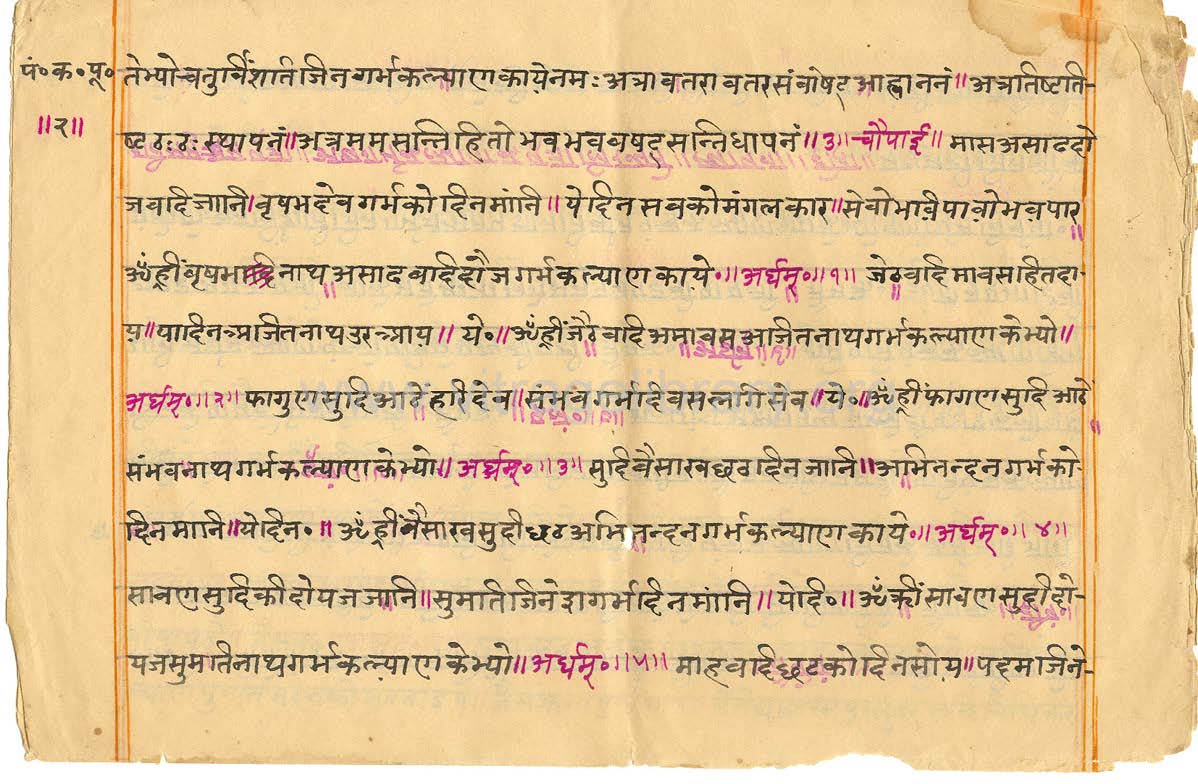 पं॰क॰पू॰ तेभ्योचतुर्विंशतिजिनगर्भकल्याणकायेनमः अत्रावतरावतरसंवोषट्आह्वाननं॥ अत्रतिष्टति-
॥२॥ ष्टठःठःस्थापनं॥अत्रममसन्निहितोभवभववषट्सन्निधापनं॥३॥चौपाई॥ मासअसाढदो
जवदिजानि।वृषभदेवगर्भकोदिनमांनि॥ येदिनसवकोमंगलकार॥सेवोभावैपावोभवपार॥
ॐह्रींवृषभनाथअसाढवदिदोजगर्भकल्याणकाये॰॥अर्घम्॰॥१॥ जेठवदिमावसहितदा-
य॥पादिनअजितनाथउरआय॥ ये॰॥ॐह्रींजेठवदिअमावसअजितनाथगर्भकल्याणकेभ्यो॥
अर्घम्॰॥२॥ फागुणसुदिआठेंहरिदेव॥संभवगर्भदिवसलागिसेव॥ये॰॥ॐह्रींफागणसुदिआठै॥
संभवनाथगर्भकल्याणकेभ्यो॥अर्घम्॰॥३॥ सुदिवैसाखछठदिनजानि॥अभिनन्दनगर्भको-
दिनमानि॥येदिन॰॥ ॐह्रींवैसाखसुदीछठअभिनन्दनगर्भकल्याणकाये॰॥अर्घम्॰॥४॥
सावणसुदिकीदोयजजानि॥सुमतिजिनेद्रागर्भदिनमांनि॥येदि॰॥ॐह्रींसावणसुदीदो-
यजसुमतिनाथगर्भकल्याणकेभ्यो॥अर्घम्॰॥५॥ माहवदिछटकोदिनसोय॥पद्मजिने-